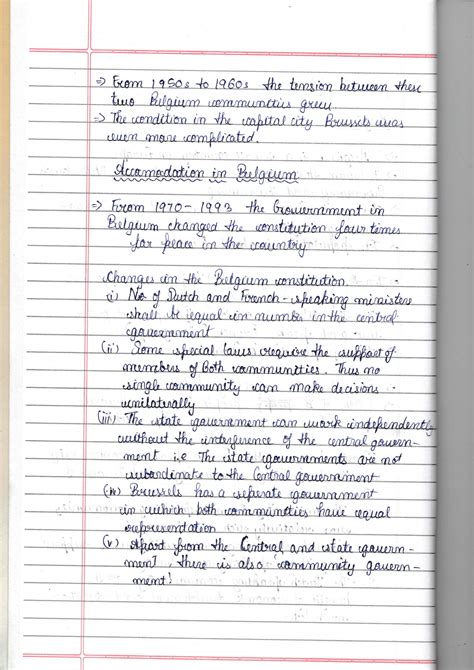 ⇒ From 1950s to 1960s the tension between these
two Belgium communities grew.
⇒ The condition in the capital city Brussels was
even more complicated.
Accomodation in Belgium
⇒ From 1970 - 1993 the Government in
Belgium changed the constitution four times
for peace in the country
Changes in the Belgium constitution.
i) No. of Dutch and French - speaking ministers
shall be equal in number in the central
government
(ii) Some special laws require the support of
members of Both communities. Thus no
single community can make decisions
unilaterally
(iii) The state government can work independently
without the interference of the central govern-
ment i.e The state governments are not
subordinate to the Central government
(iv) Brussels has a seperate government
in which both communities have equal
representation
(v) Apart from the Central and state govern-
ment, there is also community govern-
ment!